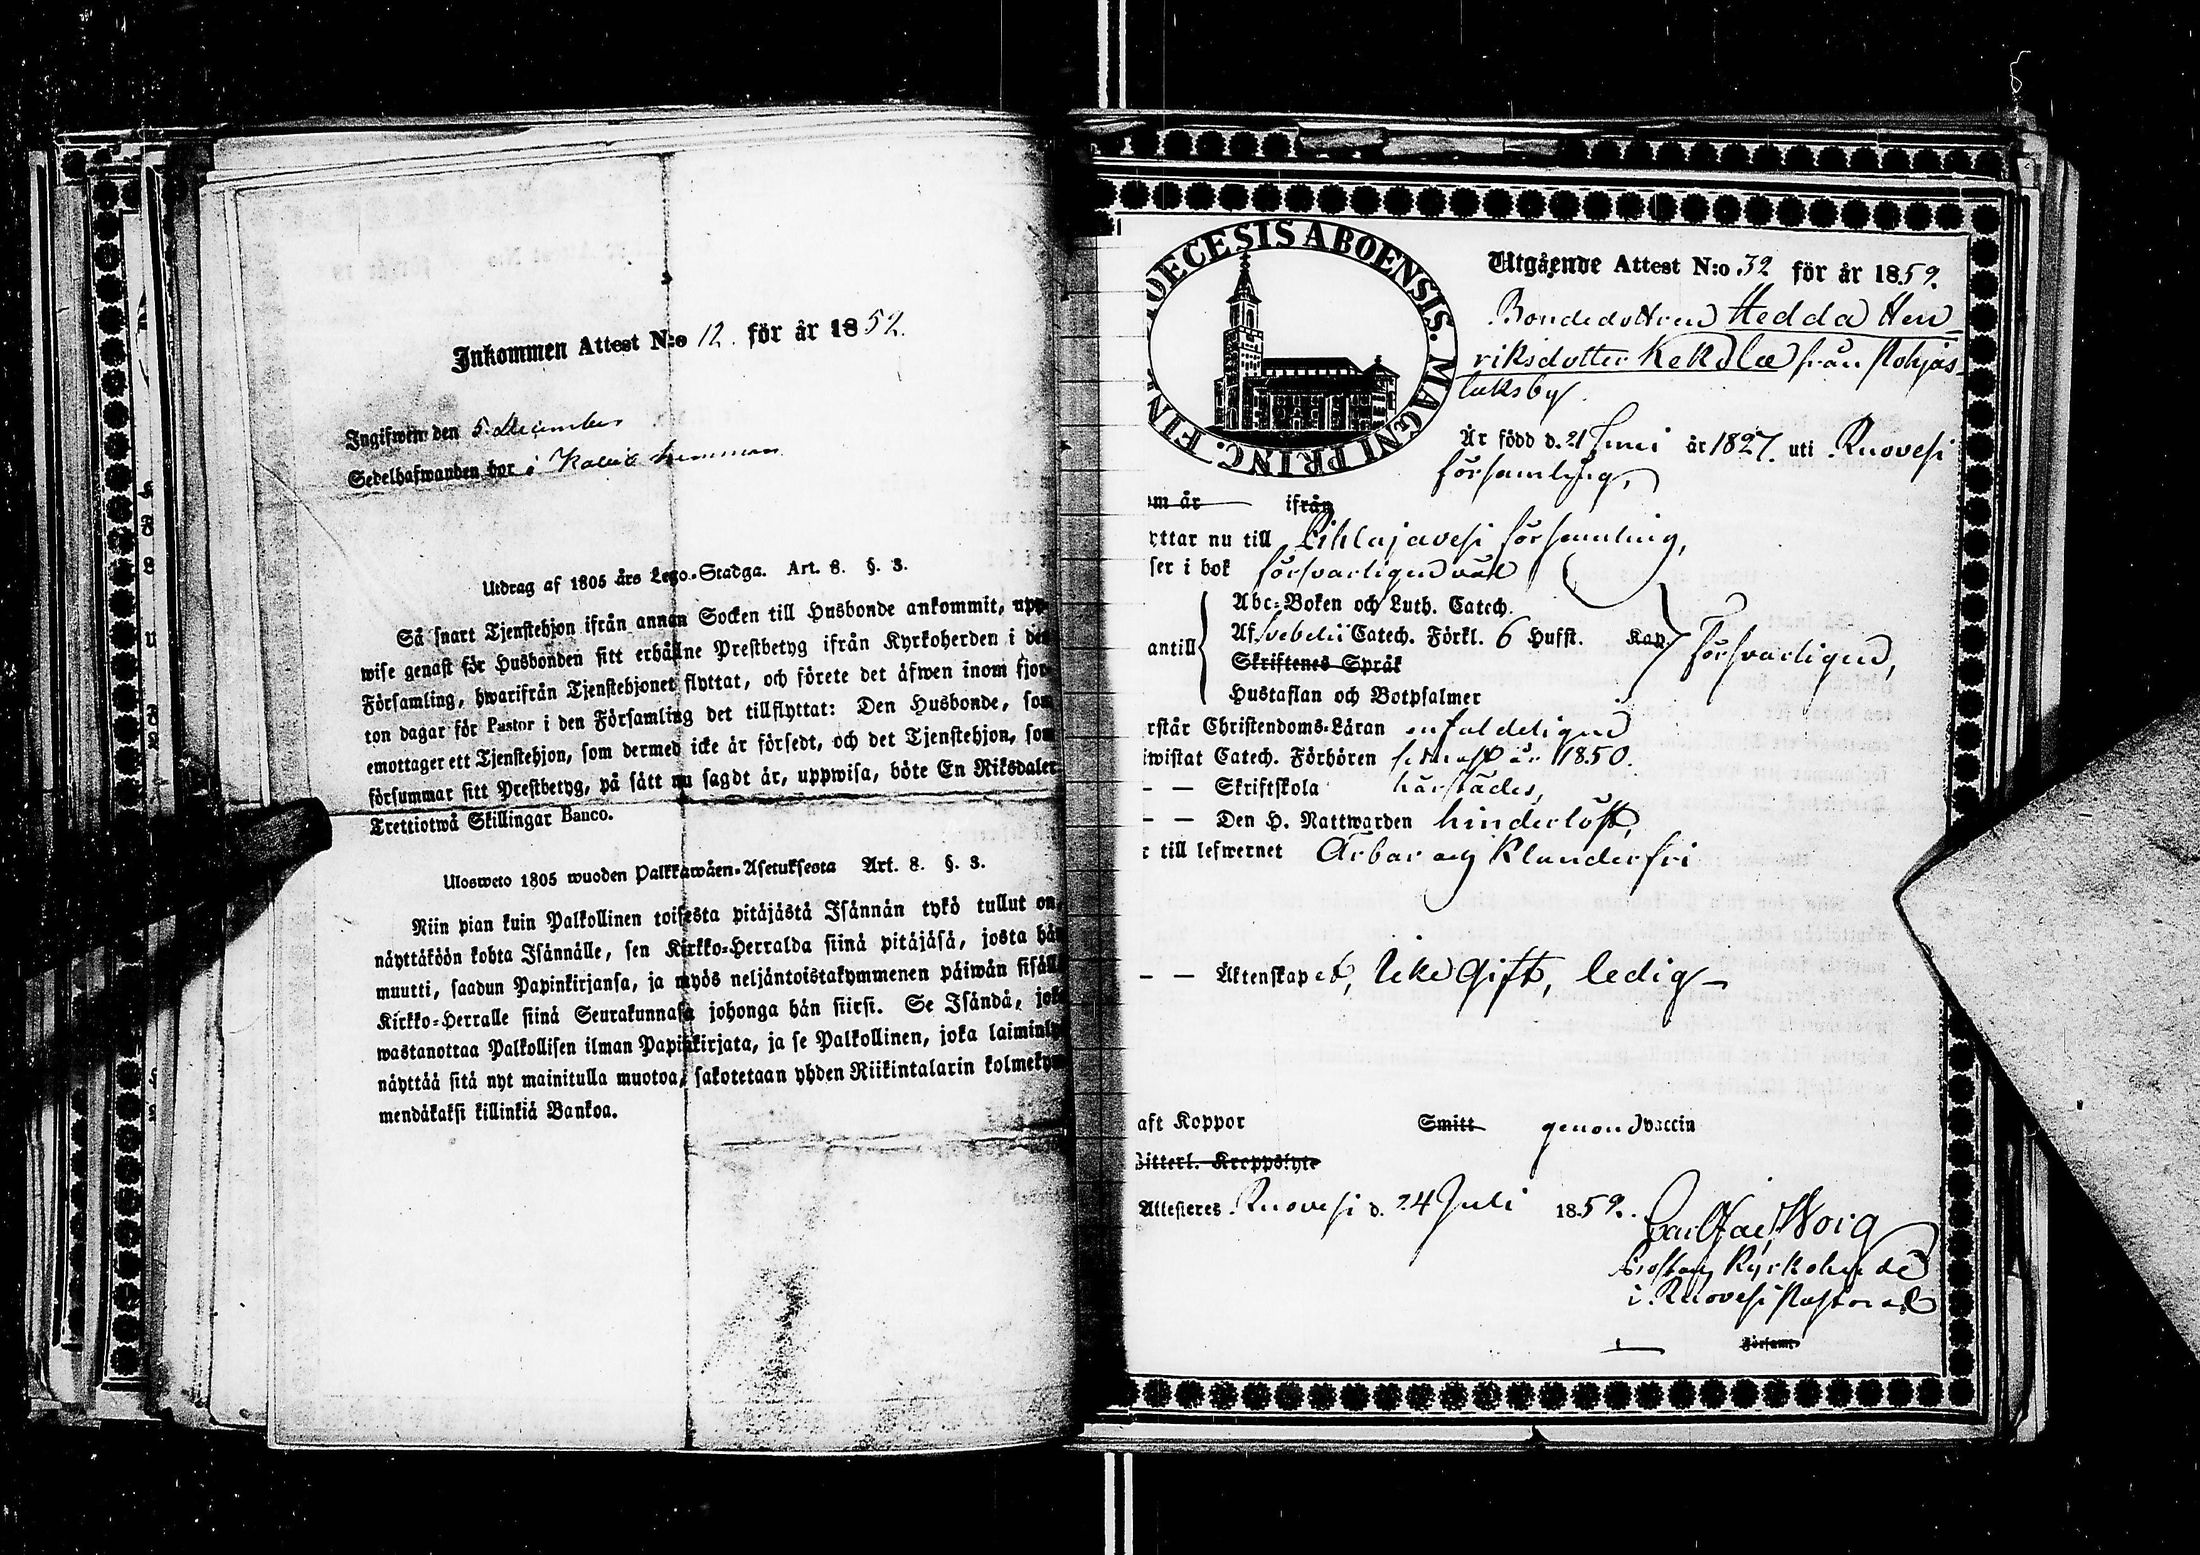 Inkommen Attest N:o 12. för år 1852.
Ingifwen den 5 december
Sedelhafwanden bor i
Utdrag af 1805 års Lego-Stadga. Art. 8. §. 3.
Så snart Tjenstehjon ifrån annan Socken till Husbonde ankommit, upp-
wise genast för Husbonden sitt erhållne Prestbetyg ifrån Kyrkoherden i den
Församling, hwarifrån Tjenstehjonet flyttat, och förete det äfwen inom fjor-
ton dagar för Pastor i den Församling det tillflyttat: Den Husbonde, som
emottager ett Tjenstehjon, som dermed icke är försedt, och det Tjenstehjon, som
försummar sitt Prestbetyg, på sätt nu sagdt är, uppwisa, böte En Riksdaler
Trettiotwå Skillingar Banco.
Uloswéto 1805 wuoden Palkkawäen-Asetuksesta Art. 8. §. 3.
Niin pian kuin Palkollinen toisesta pitäjästä Isännän tykö tullut on,
näyttäköön kohta Isännälle, sen Kirkko-Herralda siinä pitäjäsä, josta hän
muutti, saadun Papinkirjansa, ja myös neljäntoistakymmenen päiwän sisäll
Kirkko-Herralle siinä Seurakunnasa johonga hän siirsi. Se Isändä, joka
wastanottaa Palkollisen ilman Papinkirjata, ja se Palkollinen, joka laiminly
näyttää sitä nyt mainitulla muotoa, sakotetaan yhden Riikintalarin kolmekym
mendäkaksi killinkiä Bankoa.
DIOECESIS ABOENSIS. MAGNI PRINC. FIN
Utgående Attest N:o 32 för år 1852.
Bondedottren Hedda Hen-
riksdotter Kekola från Pohjas-
laksby.
Är född d. 21 Juni år 1827. uti Ruovesi
församling,
om år ifrån
yttar nu till Pihlajavesi församling,
ser i bok försvarligen väl
antill
Abc-Boken och Luth. Catech.
Af Svebelii Catech. Förkl. 6 Hufst. Kap.
Skriftenes Språk
Hustaflan och Botpsalmer
försvarligen,
rstår Christendoms-Läran enfaldeligen
iwistat Catech. Förhören sednast år 1850.
– – Skriftskola härstädes,
– – Den H. Nattwarden hinderlöst,
r till lefwernet Ärbar och Klanderfri
– – Äktenskapet, icke Gift, ledig –
aft Koppor Smitt genom vaccin
Bitterl. Kroppslyte
Attesteres Ruovesi d. 24 Juli 1852.
Prost och Kyrkoherde
i Ruovesi Pastorat
Församl.